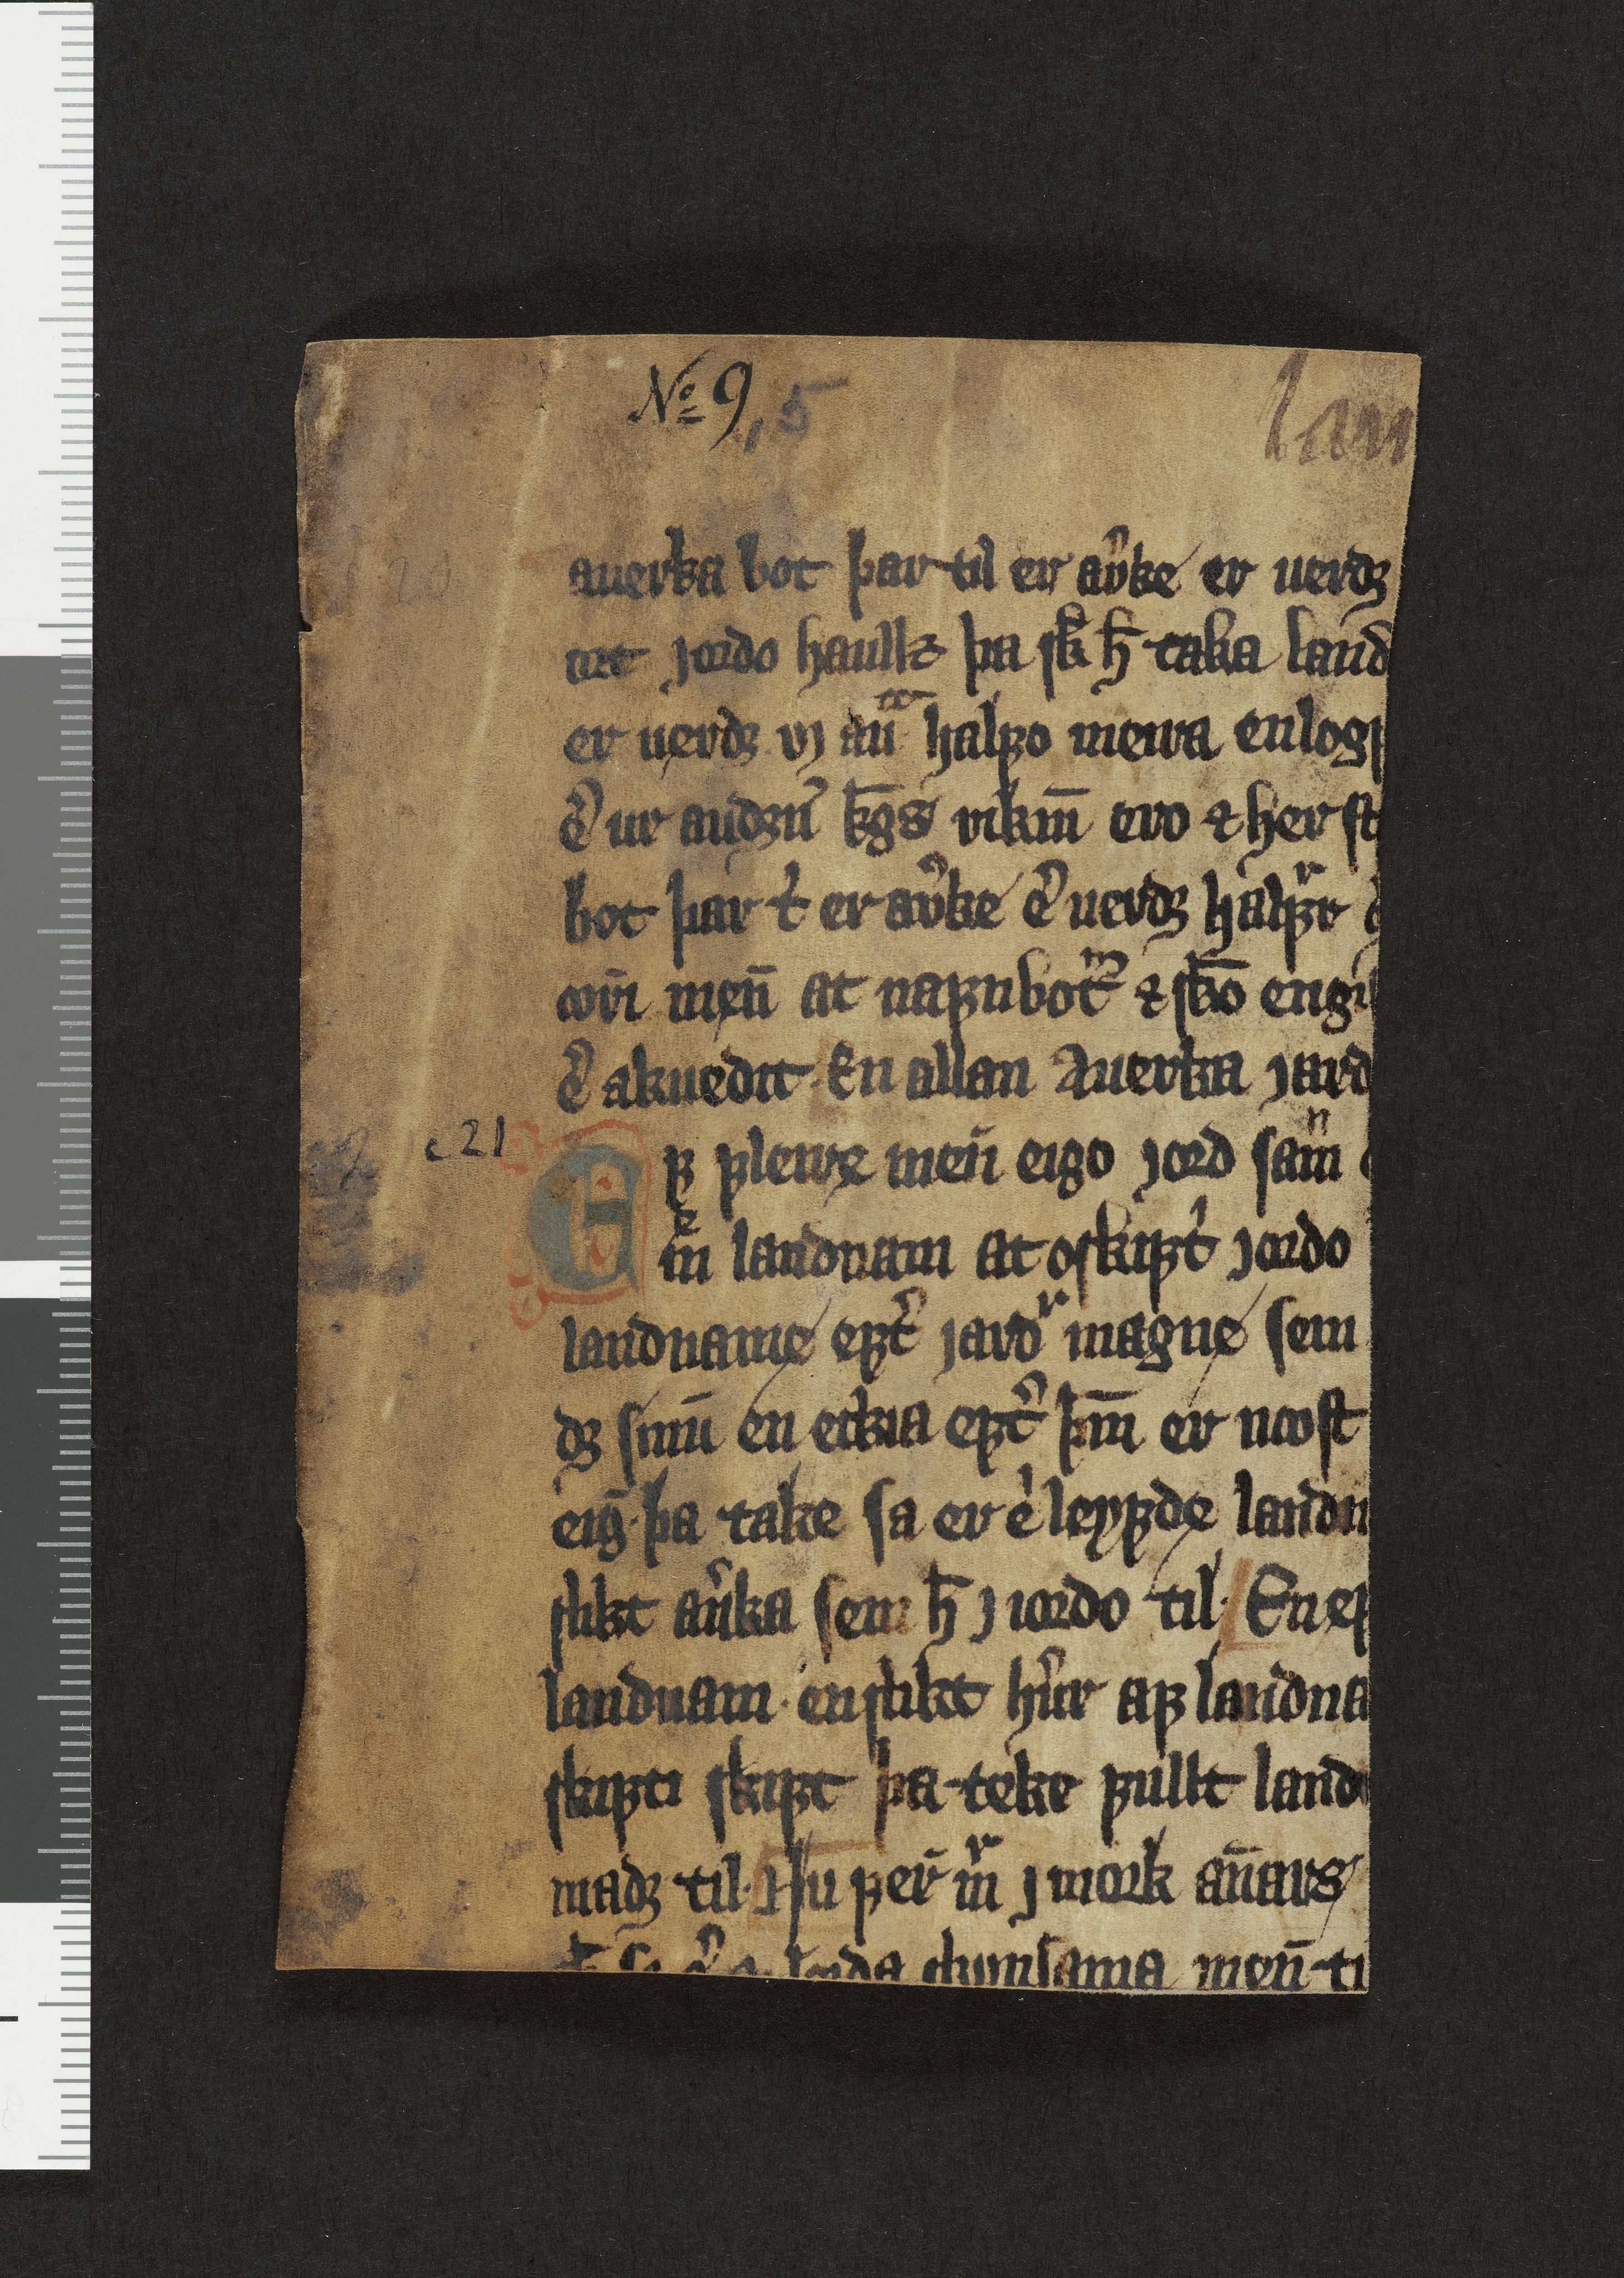 № 9,5
lan
20
auerka bot þar til er au͛ke er uerdꝫ
ort jordo haullꝫ þa sk̄ h̄ taka land
er uerdꝫ vj au͛ halꝼo meira en log
e͛ ur audꝛu͛ kḡs rikm̄ ero ⁊ her st
bot þar t͛ er au͛ke e͛ uerdꝫ halꝼr
men̄ at uaꝼnbot ⁊ sk̄o engi
e͛ akuedit. En allan Auerka jard
c 21
Eꝼ ꝼleire men̄ eigo jord sam̄
m̄ landnam at oskiꝼt͛ jordo
landname eꝼt͛ jardʳ magne sem
dꝫ sinu en eikia eꝼt͛ þm̄ er most
eig̅. þa take sa er e͛ leyꝼde landn
slikt au͛ka sem h̄ j iordo til. En eꝼ
landnam. en slikt hu͛r aꝼ landna
skiꝼti skiꝼt þa teke ꝼullt land
madꝫ til. Nu ꝼer̄ m̄ʳ j mork an̄ars
men̄ ti